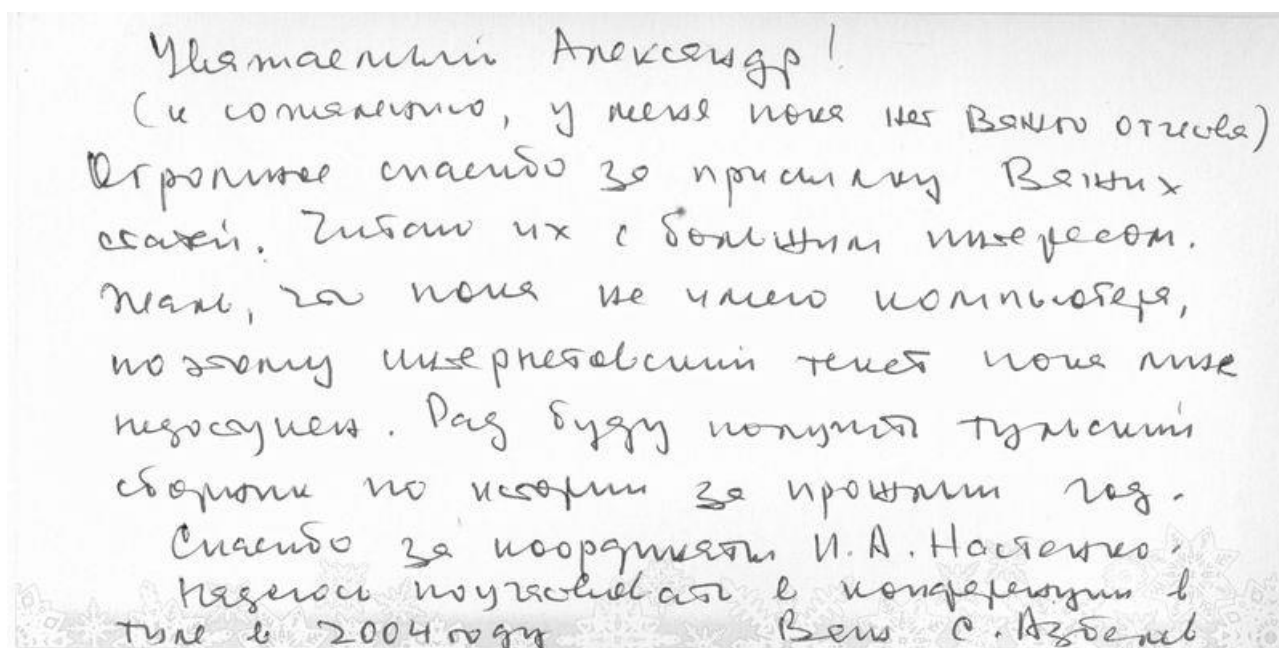 Уважаемый Александр!
(к сожалению, у меня пока нет Вашего отчества)
Огромное спасибо за присылку Ваших
статей. Читаю их с большим интересом.
Жаль, что пока не имею компьютера,
поэтому интернетовский текст пока мне
недоступен. Рад буду получить тульский
сборник по истории за прошлый год.
Спасибо за координаты И.А. Настенко.
Надеюсь поучаствовать в конференции в
Туле в 2004 году Ваш С. Азбелев